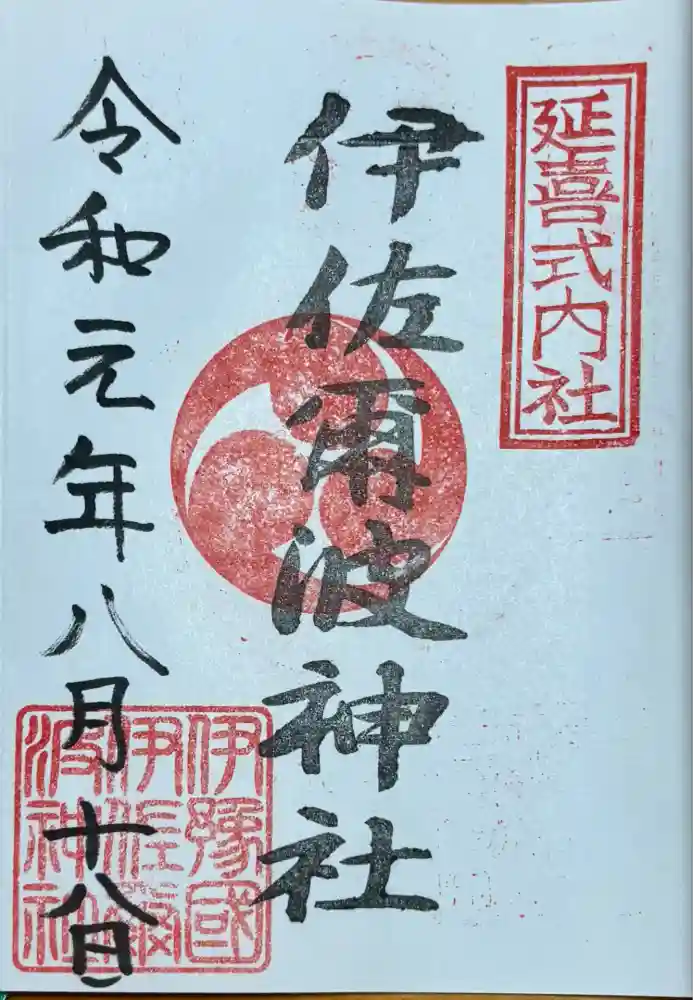 延喜式内社
伊佐爾波神社
伊豫國
伊佐爾
波神社
令和元年八月十八日